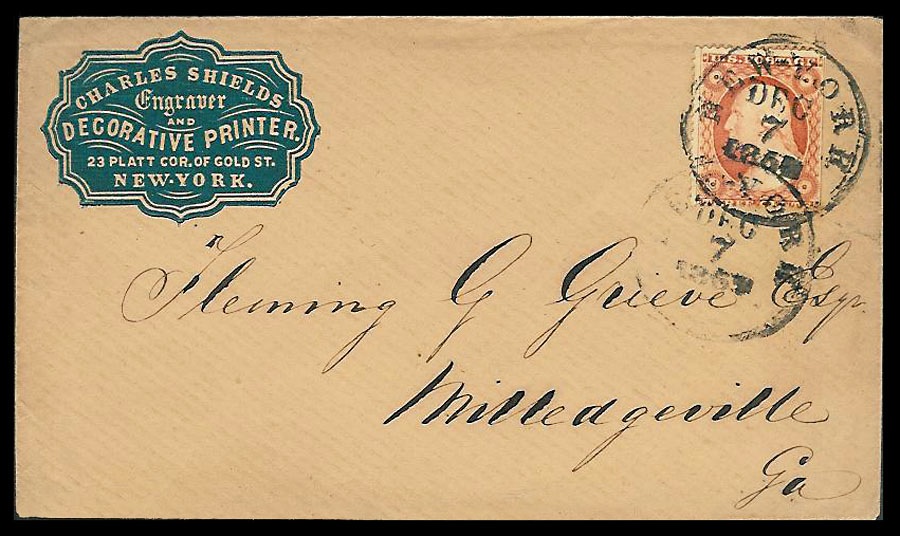 CHARLES SHIELDS
Engraver
AND
DECORATIVE PRINTER.
23 PLATT COR. OF GOLD ST.
NEW-YORK.
NEW-YORK
DEC
7
DEC
7
Fleming G Grieve Esqr.
Milledgeville
Ga